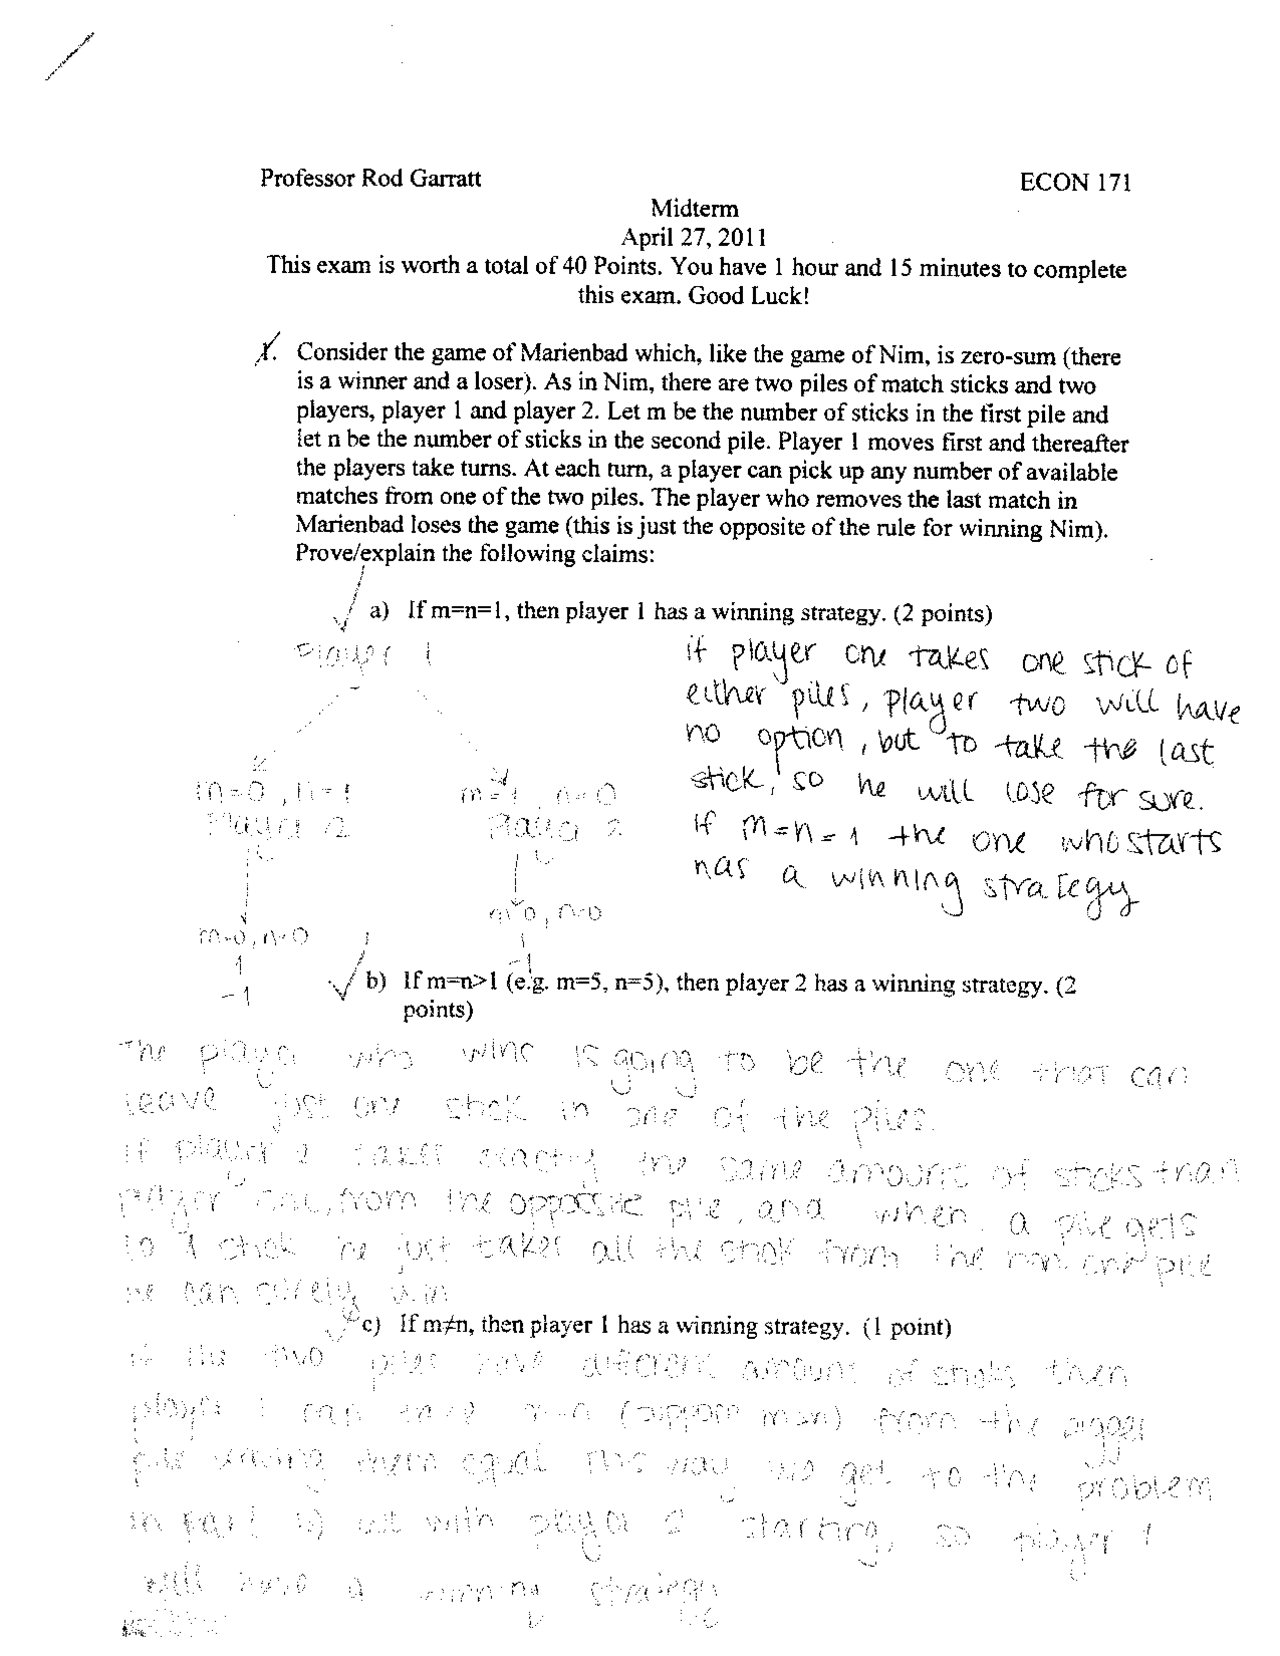 Professor Rod Garratt ECON 171
Midterm
April 27, 2011
This exam is worth a total of 40 Points. You have 1 hour and 15 minutes to complete
this exam. Good Luck!
1. Consider the game of Marienbad which, like the game of Nim, is zero-sum (there
is a winner and a loser). As in Nim, there are two piles of match sticks and two
players, player 1 and player 2. Let m be the number of sticks in the first pile and
let n be the number of sticks in the second pile. Player 1 moves first and thereafter
the players take turns. At each turn, a player can pick up any number of available
matches from one of the two piles. The player who removes the last match in
Marienbad loses the game (this is just the opposite of the rule for winning Nim).
Prove/explain the following claims:
a) If m=n=1, then player 1 has a winning strategy. (2 points)
Player 1
m=0, n=1 m=1, n=0
Player 2 Player 2
m=0, n=0 m=0, n=0
1 1
-1 -1
if player one takes one stick of
either piles, player two will have
no option, but to take the last
stick, so he will lose for sure.
If m=n=1 the one who starts
has a winning strategy
b) If m=n>1 (e.g. m=5, n=5), then player 2 has a winning strategy. (2
points)
The player who wins is going to be the one that can
leave just one stick in one of the piles.
If player 2 takes exactly the same amount of sticks than
player one, from the opposite pile, and when a pile gets
to 1 stick he just takes all the stick from the non one pile
he can surely win
c) If m≠n, then player 1 has a winning strategy. (1 point)
if the two piles have different amount of sticks then
player 1 can take m-n (suppose m>n) from the bigger
pile making them equal This way we get to the problem
in part b) but with player 2 starting, so player 1
will have a winning strategy